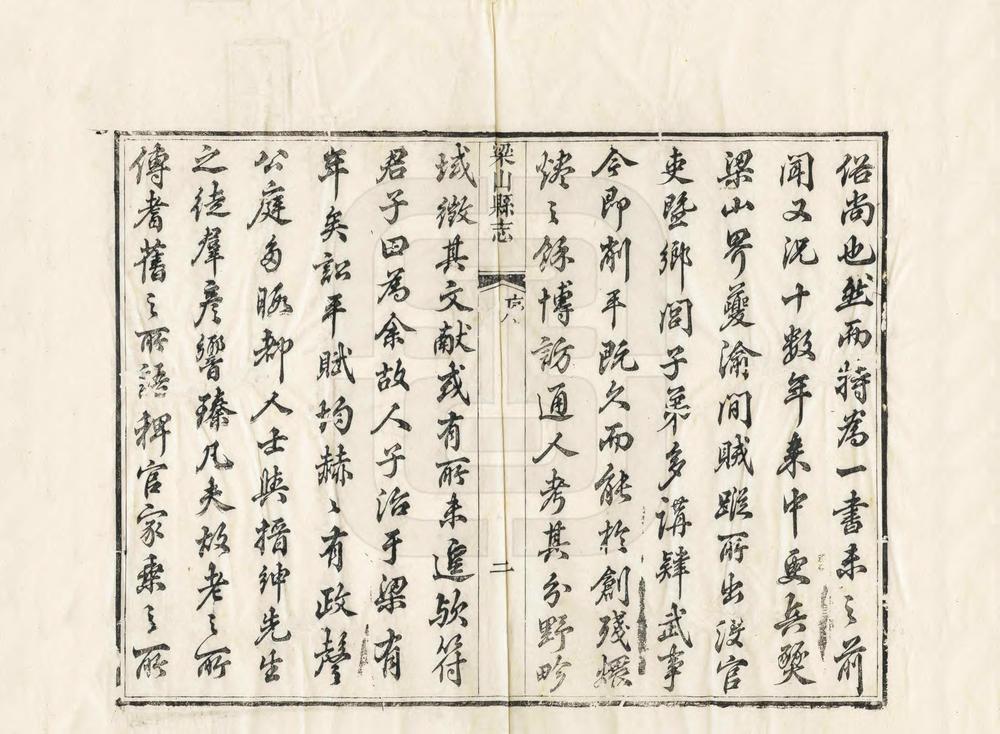 俗尚也然而特為一書未之前
聞又況十數年来中更兵燹
梁山界夔渝間賊蹤所出沒官
吏曁鄉閭子弟多講肄武事
今即削平既久而能於創殘煨
燼之餘博訪通人考其分野畛
梁山縣志
二
域徵其文献或有所未遑歟符
君子田為余故人子治于梁有
年矣訟平賦均赫〻有政聲
公庭多暇都人士與搢紳先生
之徒羣彥響臻凡夫故老之所
傳耆舊之所語稗官家乘之所